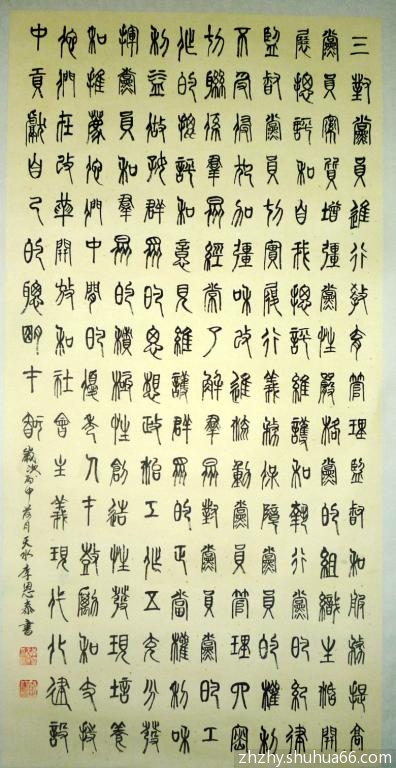 三對黨員進行教育管理監督和服務提高
黨員素質增強黨性嚴格黨的組織生活開
展批評和自我批評維護和執行黨的紀律
監督黨員切實履行義務保障黨員的權利
不受侵犯加強和改進流動黨員管理四密
切聯係羣眾經常了解羣眾對黨員黨的工
作的批評和意見維護群眾的正當權利和
利益做好群眾的思想政治工作五充分發
揮黨員和羣眾的積極性創造性發現培養
和推薦他們中間的優秀人才鼓勵和支持
他們在改革開放和社會主義現代化建設
中貢獻自己的聰明才智
歲次丙申荷月天水李恩泰書
zhzhy.shuhua66.com